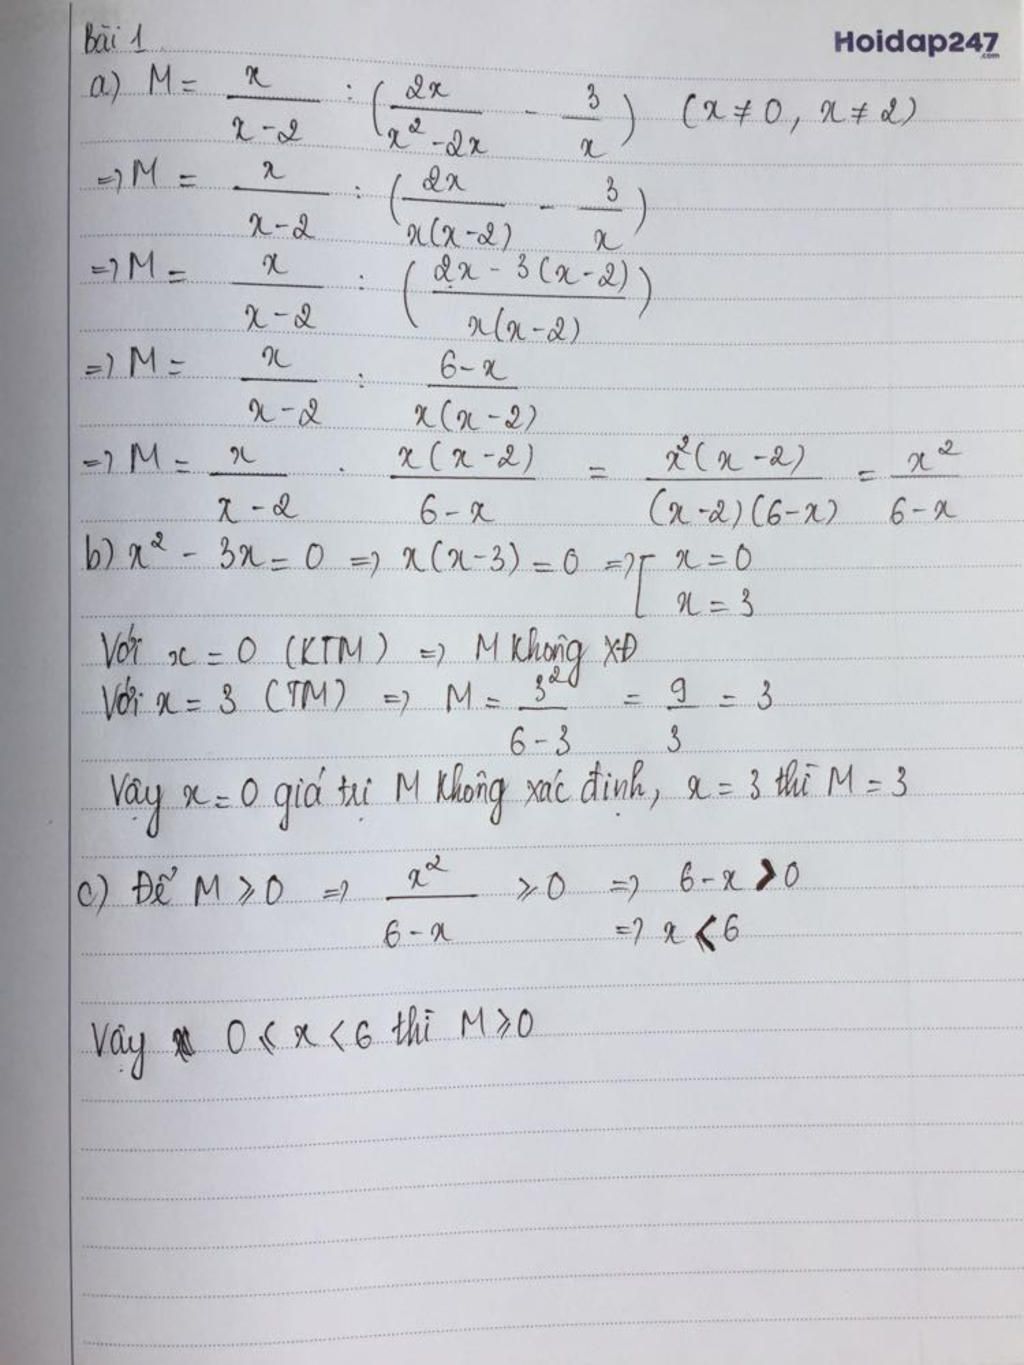 Bài 1
Hoidap247.com
a) M = x/(x-2) : (2x/(x²-2x) - 3/x) (x≠0, x≠2)
=> M = x/(x-2) : (2x/(x(x-2)) - 3/x)
=> M = x/(x-2) : ((2x-3(x-2))/(x(x-2)))
=> M = x/(x-2) : (6-x)/(x(x-2))
=> M = x/(x-2) . x(x-2)/(6-x) = x²(x-2)/((x-2)(6-x)) = x²/(6-x)
b) x² - 3x = 0 => x(x-3) = 0 => [ x = 0
x = 3
Với x = 0 (KTM) => M không XĐ
Với x = 3 (TM) => M = 3²/(6-3) = 9/3 = 3
Vậy x = 0 giá trị M không xác định, x = 3 thì M = 3
c) Để M ⩾ 0 => x²/(6-x) ⩾ 0 => 6-x > 0
=> x < 6
Vậy 0 ⩽ x < 6 thì M ⩾ 0